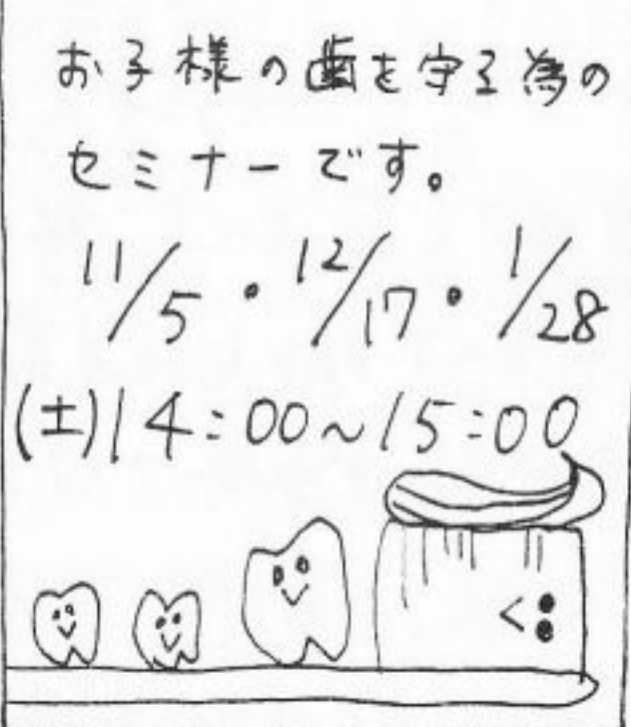 お子様の歯を守る為の
セミナーです。
11/5・12/17・1/28
(土)14:00~15:00